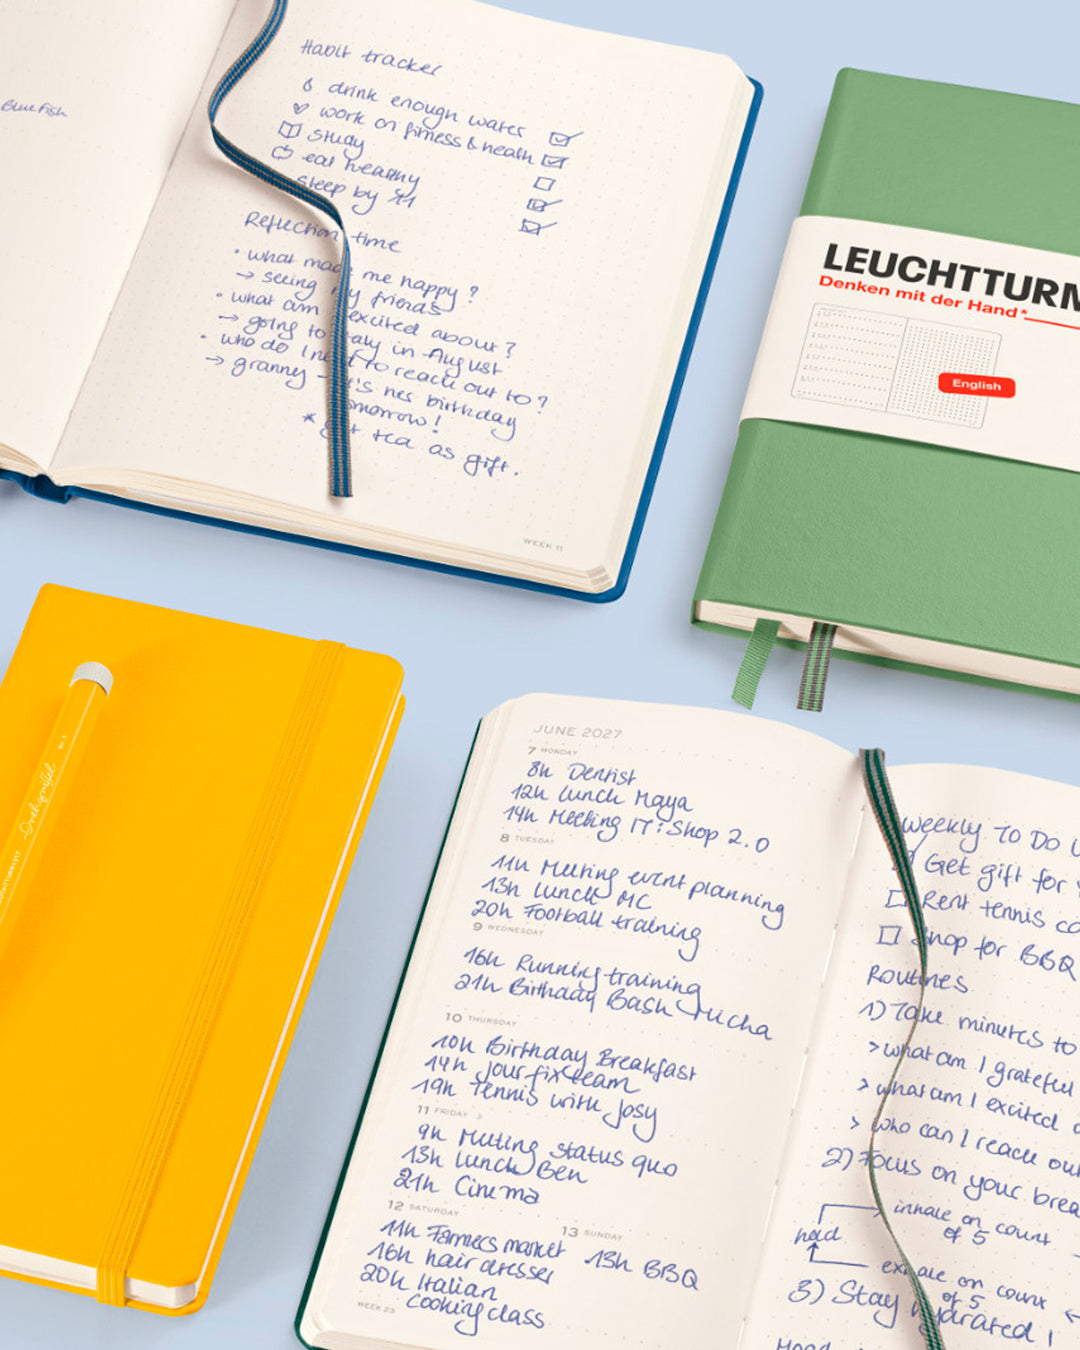 Blue Fish
Habit tracker
drink enough water
work on fitness & health
study
eat healthy
sleep by 11
Reflection time
• what made me happy?
→ seeing my friends
• what am I excited about?
→ going to Italy in August
• who do I need to reach out to?
→ granny - it's her birthday
tomorrow!
* get tea as gift.
WEEK 11
LEUCHTTURM
Denken mit der Hand*
English
Drehgriffel
Nr. 1
LEUCHTTURM1917
JUNE 2027
7 MONDAY
8h Dentist
12h Lunch Maya
14h Meeting IT: Shop 2.0
8 TUESDAY
11h Meeting event planning
13h Lunch MC
20h Football training
9 WEDNESDAY
16h Running training
21h Birthday Bash Mcha
10 THURSDAY
10h Birthday Breakfast
14h Jour fixe team
19h Tennis with Josy
11 FRIDAY
9h Meeting status quo
13h Lunch Ben
21h Cinema
12 SATURDAY
11h Farmers market
16h hairdresser
20h Italian
Cooking class
13 SUNDAY
13h BBQ
WEEK 23
Weekly To Do
Get gift for
Rent tennis
Shop for BBQ
Routines
1) Take minutes to
> what am I grateful
> what am I excited
> who can I reach out
2) Focus on your
inhale on count
of 5
hold
exhale on count
of 5
3) Stay hydrated!